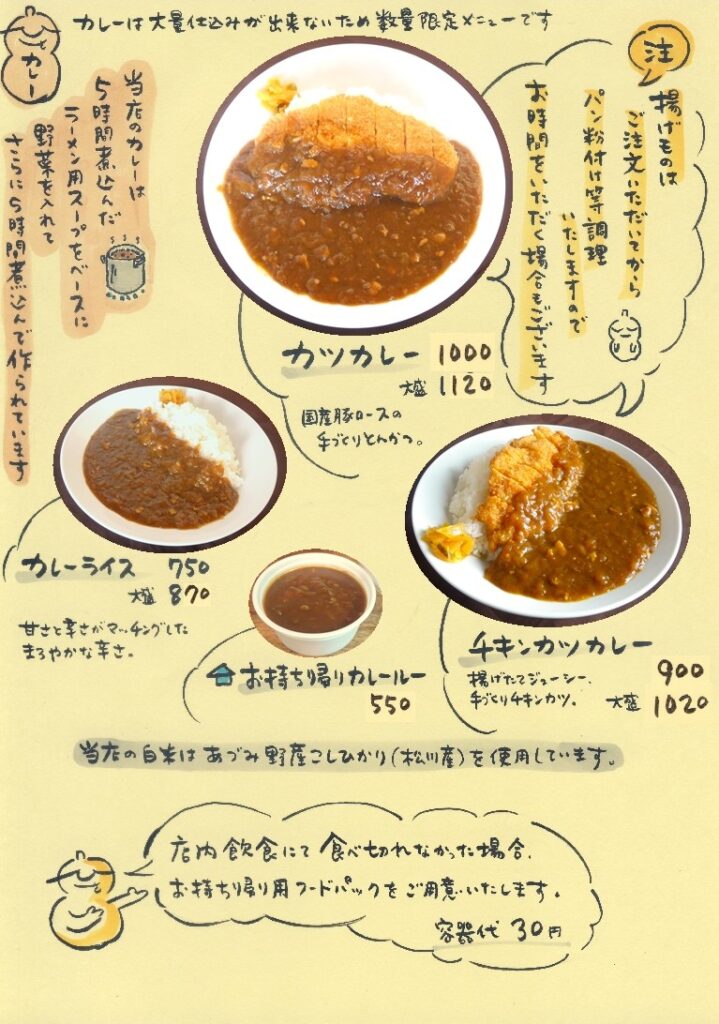 カレーは大量仕込みが出来ないため数量限定メニューです
カレー
当店のカレーは
5時間煮込んだ
ラーメン用スープをベースに
野菜を入れて
さらに5時間煮込んで作られています
注
揚げものは
ご注文いただいてから
パン粉付け等調理
いたしますので
お時間をいただく場合もございます
カツカレー 1000
大盛 1120
国産豚ロースの
手づくりとんかつ。
カレーライス 750
大盛 870
甘さと辛さがマッチングした
まろやかな辛さ。
お持ち帰りカレールー
550
チキンカツカレー
900
揚げたてジューシー、
手づくりチキンカツ。
大盛 1020
当店の白米はあづみ野産こしひかり(松川産)を使用しています。
店内飲食にて食べ切れなかった場合、
お持ち帰り用フードパックをご用意いたします。
容器代 30円